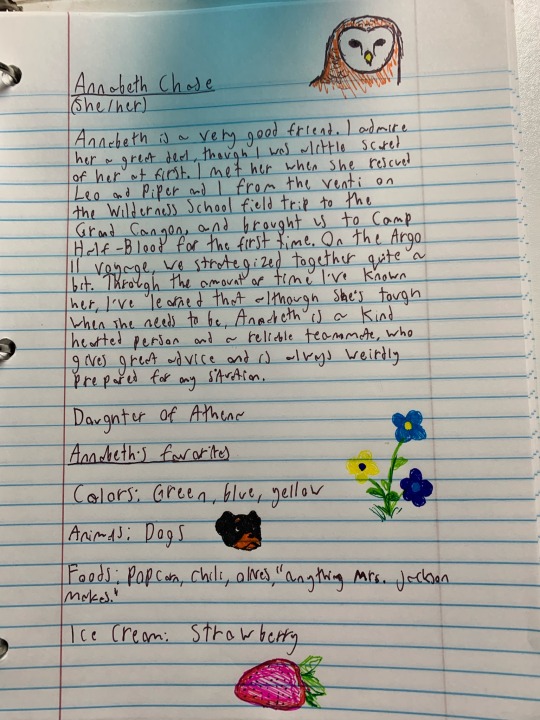 Annabeth Chase
(she/her)
Annabeth is a very good friend. I admire
her a great deal, though I was a little scared
of her at first. I met her when she rescued
Leo and Piper and I from the venti on
the Wilderness School field trip to the
Grand Canyon, and brought us to Camp
Half-Blood for the first time. On the Argo
II voyage, we strategized together quite a
bit. Through the amount of time I've known
her, I've learned that although she's tough
when she needs to be, Annabeth is a kind
hearted person and a reliable teammate, who
gives great advice and is always weirdly
prepared for any situation.
Daughter of Athena
Annabeth's favorites
Colors: Green, blue, yellow
Animals: Dogs
Foods: popcorn, chili, olives, "anything Mrs. Jackson
makes."
Ice Cream: Strawberry